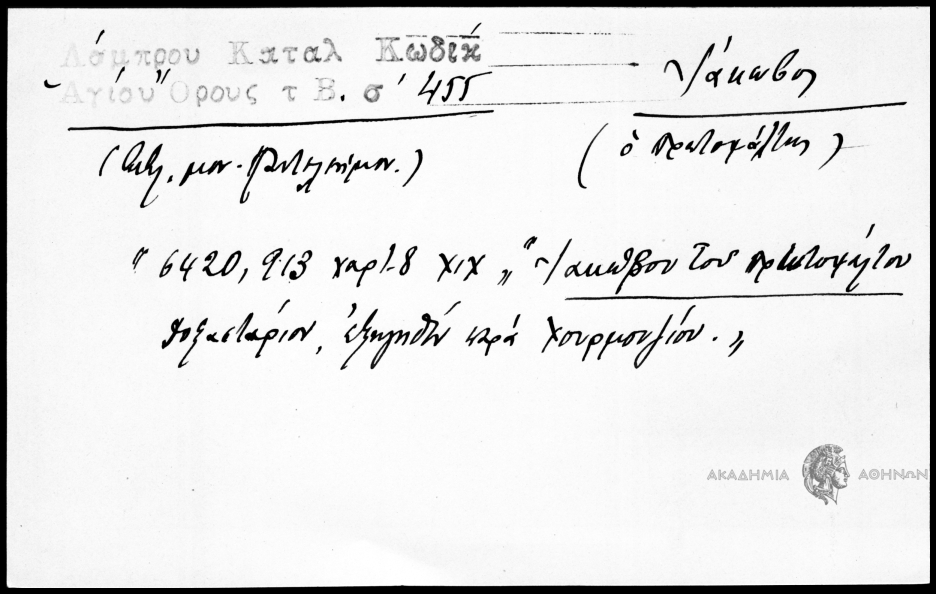 Λάμπρου Καταλ Κωδίκ
Ἁγίου Ὄρους τ Β. σ' 455
Ἰάκωβος
(ὁ πρωτοψάλτης)
(Ἐκκλ. μον. Παντελεήμον.)
" 6420, 913 χαρτ. 8 XIX „ " Ἰακώβου τοῦ πρωτοψάλτου
Δοξαστάριον, ἐξηγηθὲν παρὰ Χουρμουζίου. „
ΑΚΑΔΗΜΙΑ ΑΘΗΝΩΝ